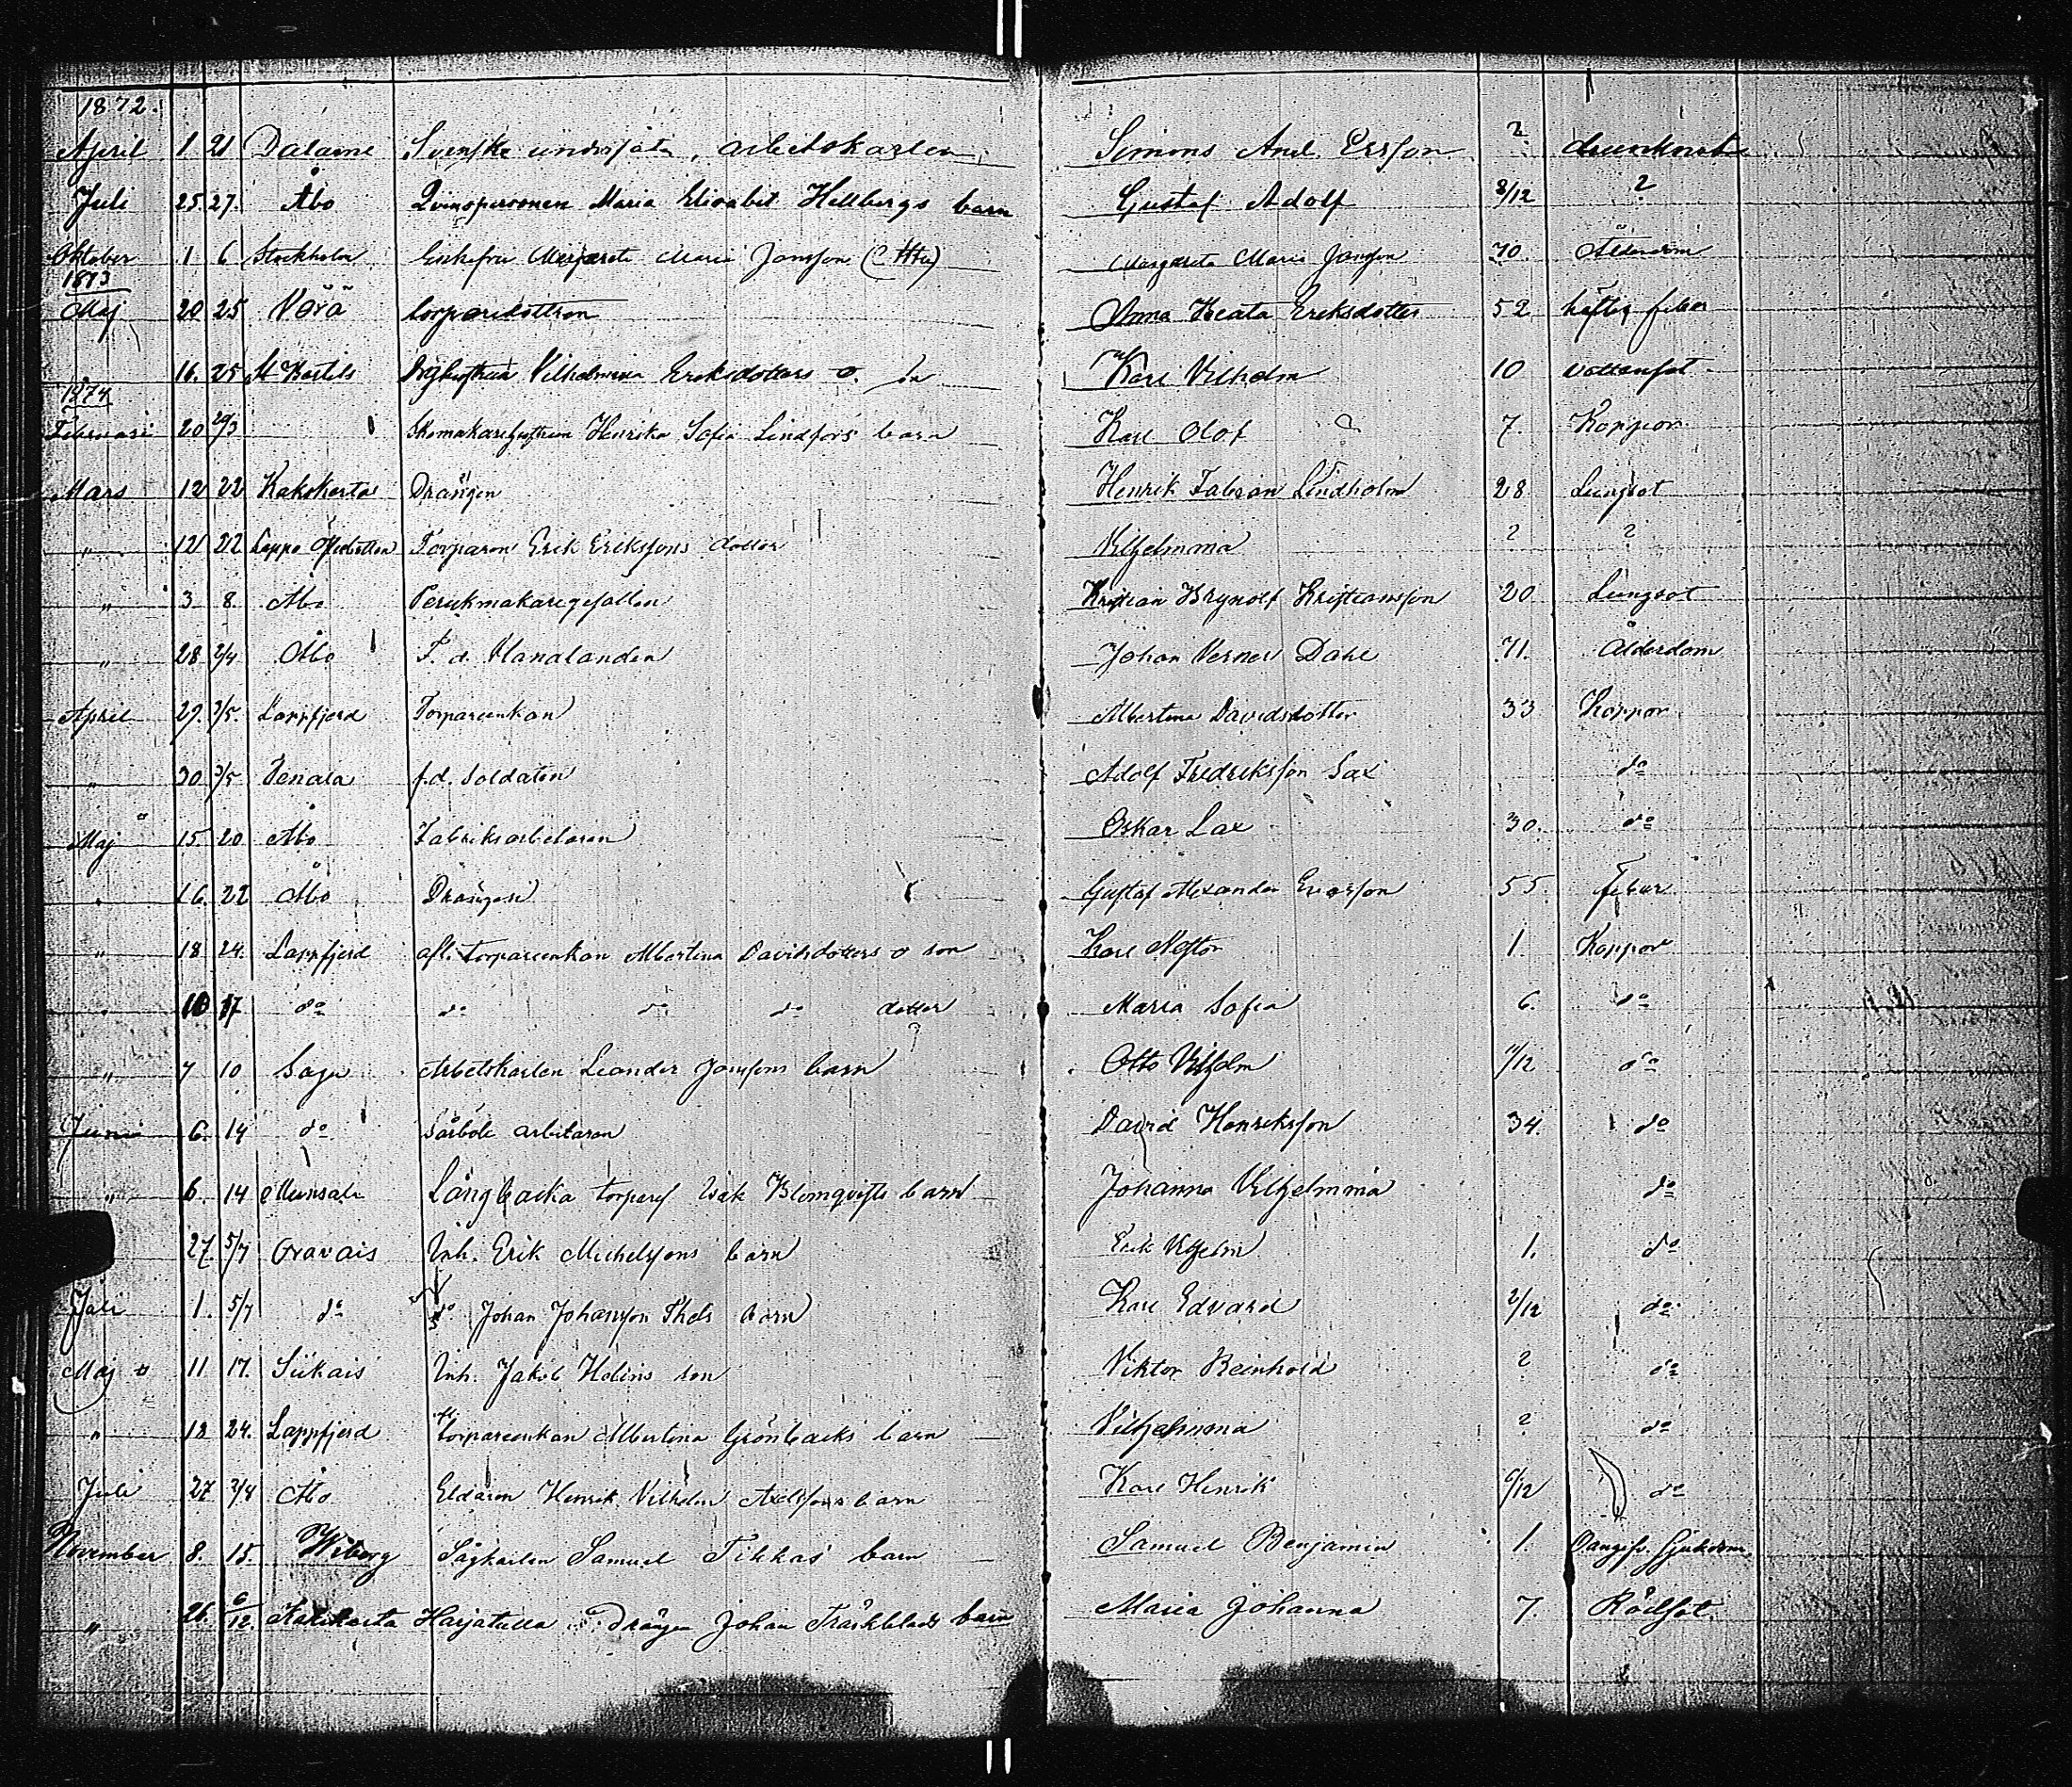 1872.
April 1. 21 Dalarne Svenske undersåte, arbetskarlen, Simons And. Ersson ? drunknat
Juli 25. 27. Åbo Qvinspersonen Maria Elisabet Hellbergs barn Gustaf Adolf 8/12 ?
Oktober 1 6 Stockholm Enkefru Margareta Maria Jansson Margareta Maria Jansson 70 Ålderdom
1873
Maj 20 25 Vörå Anna Beata Eriksdotter 52 häftig feber
16. 25 St Karins Vilhelmina Eriksdotters o. Karl Vilhelm 10 Vattensot
1874
Februari 20 20/3 Henrika Sofia Lindfors barn Karl Olof ? 7. Koppor
Mars 12 22 Kakskerta Drängen Henrik Fabian Lindholm 28 Lungsot
" 12 22 Lappo Torparen Erik Erikssons dotter Vilhelmina ? ?
" 3 8. Åbo Perukmakaregesällen Kristian Brynolf Kristiansson 20. Lungsot
" 28 2/4 Åbo F. d. Johan Verner Dahl 71. Ålderdom
April 29. 3/5. Lappfjerd Torpareenkan Albertina Davidsdotter 33 Koppor
" 30. 3/5 Venala f.d. Soldaten Adolf Fredriksson Sax do
Maj 15. 20 Åbo Fabriksarbetaren Oskar Lax 30. do
" 16. 22 Åbo Drängen Gustaf Alexander 55 Feber
" 18 24. Lappfjerd afl. torpareenkan Albertina Davidsdotters o son Karl Nestor 1. Koppor
" 10 17 do do do do dotter Maria Sofia 6. do
?
" 7 10 Sagu Arbetskarlen Leander Janssons barn Otto Vilhelm 7/12 do
Juni 6. 14 do arbetaren David Henriksson 34. do
" 6. 14 Munsala Långbacka torparef Isak Blomqvists barn Johanna Vilhelmina do
27. 5/7 Oravais Inh. Erik Michelssons barn Erik Vilhelm 1. do
Juli 1. 5/7 do do Johan Johansson Thels barn Karl Edvard 2/12 do
Maj 11 17. Siikais Inh. Jakob Holins son Viktor Reinhold ? do
" 18 24. Lappfjerd afl. torpareenkan Albertina Grönbacks barn Vilhelmina ? do
Juli 27 2/4 Åbo Eldaren Henrik Vilhelm Axelssons barn Karl Henrik 6/12 do
November 8. 15. Wiborg Sågkarlen Samuel Tikkas barn Samuel Benjamin 1. Oangifv. sjukdom
" 26. 6/12. Kakskerta Harjatulla Drängen Johan Träskblads barn Maria Johanna 7. Rödsot